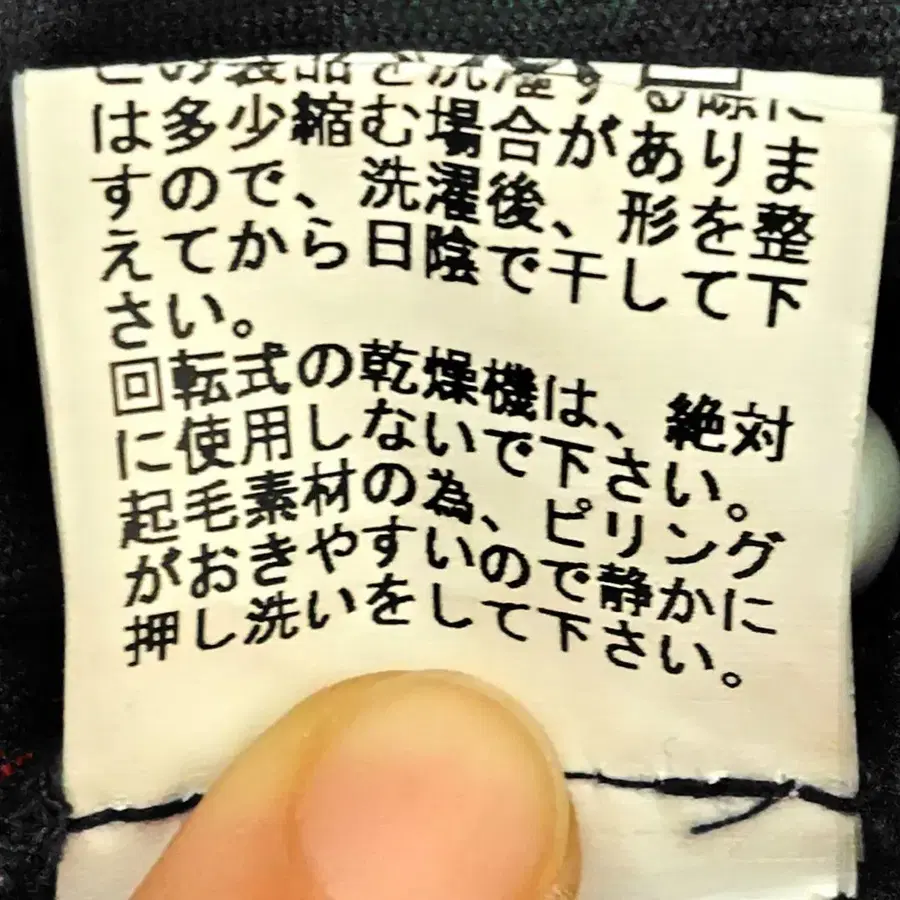 この製品を洗濯する際に
は多少縮む場合がありま
すので、洗濯後、形を整
えてから日陰で干して下
さい。
回転式の乾燥機は、絶対
に使用しないで下さい。
起毛素材の為、ピリング
がおきやすいので静かに
押し洗いをして下さい。